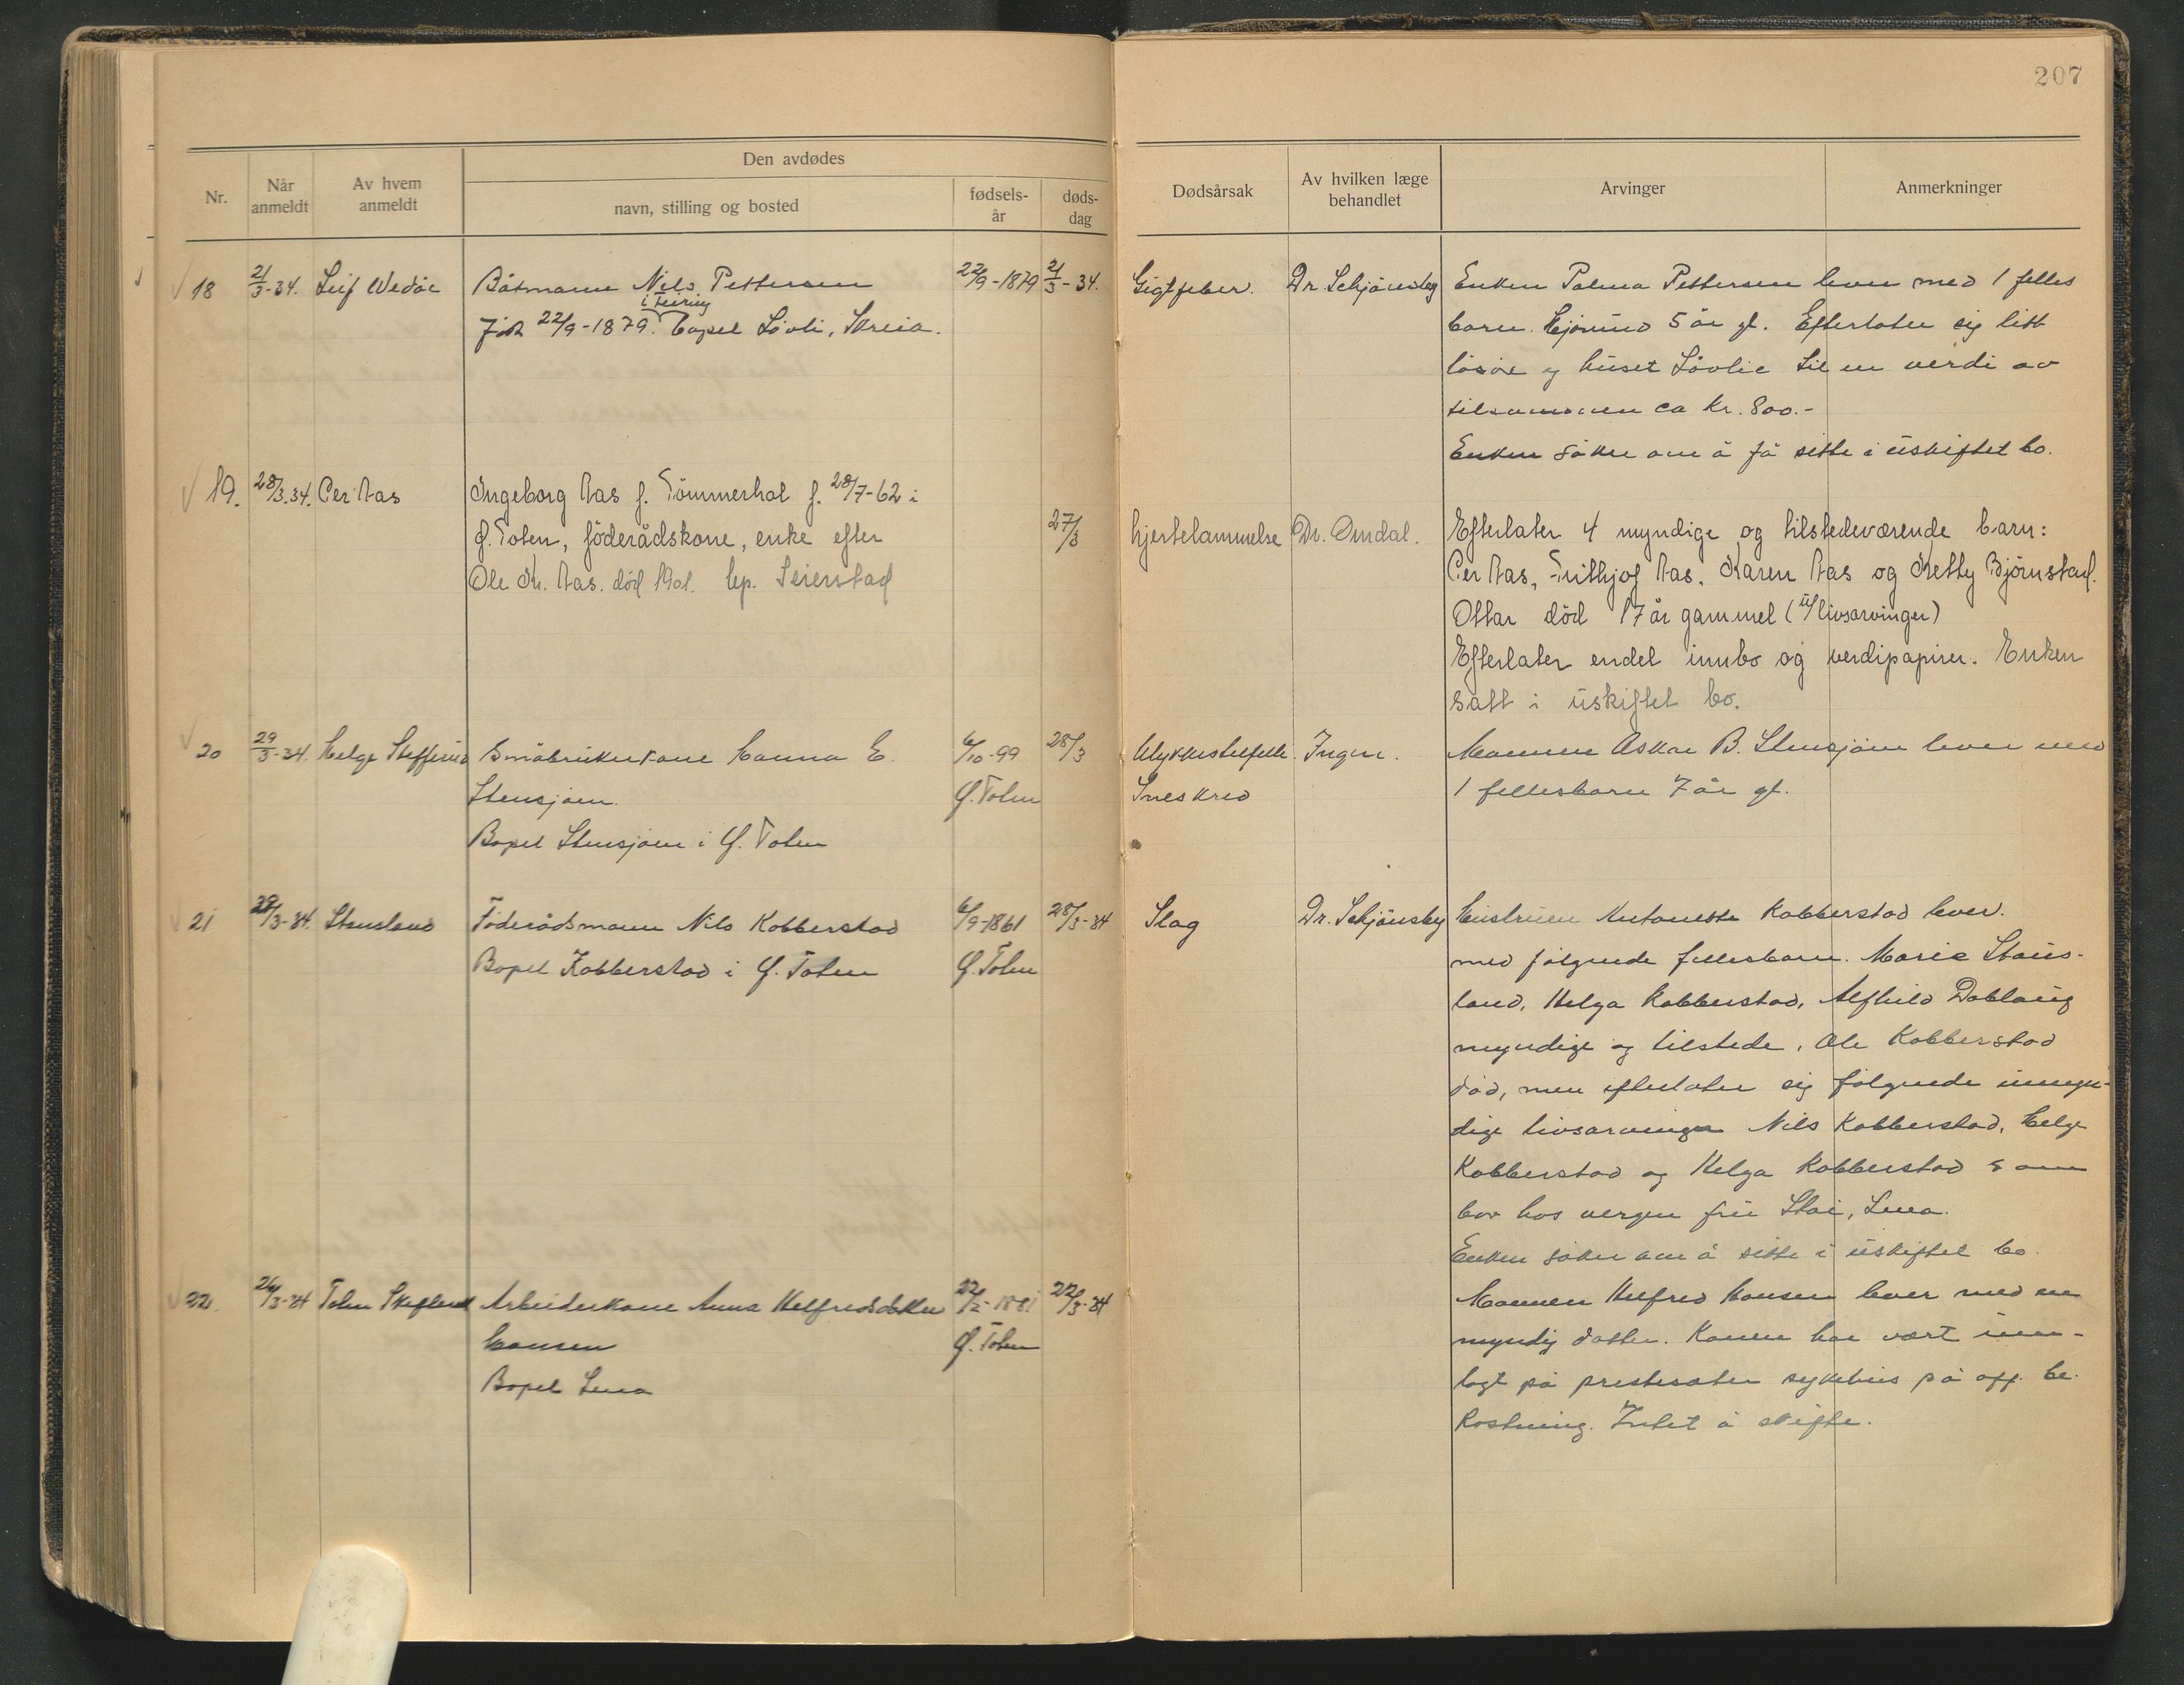 207
Den avdødes
Nr.
Når anmeldt
Av hvem anmeldt
navn, stilling og bosted
fødsels-år
døds-dag
Dødsårsak
Av hvilken læge behandlet
Arvinger
Anmerkninger
18 21/3-34. Leif Wedøe Båtmann Nils Pettersen 22/9-1879 21/3-34. Gigtfeber. Dr. Schjönsby
i Feiring
Föt 22/9-1879. bopel Lövli, Skreia.
Enken Palma Pettersen lever med 1 felles
barn. Hjörund 5 år gl. Efterlater sig litt
lösöre og huset Lövlie til en verdi av
tilsammen ca kr. 800.-
Enken söker om å få sitte i uskiftet bo.
19. 28/3.34. Per Aas Ingeborg Aas f. Tömmerhol f. 28/7-62 i
Ö. Toten, föderådskone, enke efter 27/3 hjertelammelse Dr. Omdal.
Ole Kr. Aas. död 1901. bp. Seierstad
Efterlater 4 myndige og tilstedeværende barn:
Per Aas, Frithjof Aas, Karen Aas og Ketty Björnstad.
Ottar död 17 år gammel (u/livsarvinger)
Efterlater endel innbo og verdipapirer. Enken
satt i uskiftet bo.
20 29/3-34. Helge Stefferud Småbrukerkone Hanna E. 6/10-99 28/3 Ulykkestilfelle. Ingen.
Stensjøen. Ö. Toten Sneskred
Bopel Stensjøen i Ö. Toten
Mannen Oskar B. Stensjøen lever med
1 fellesbarn 7 år gl.
21 29/3-34. Stensland Föderådsmann Nils Kobberstad 6/9-1861 28/3-34 Slag Dr. Schjönsby
Bopel Kobberstad i Ö. Toten Ö. Toten
Hustruen Antonette Kobberstad lever.
med følgende fellesbarn. Marie Stens-
land, Helga Kobberstad, Alfhild Dobloug
myndige og tilstede. Ole Kobberstad
död, men efterlater sig følgende umyn-
dige livsarvinger Nils Kobberstad, Helge
Kobberstad og Helga Kobberstad som
bor hos vergen fru Stai, Lena.
Enken söker om å sitte i uskiftet bo.
22. 26/3-34 Toten Skifterett Arbeiderkone Anna Helfredsdatter 22/2-1881 22/3-34
Hansen Ö. Toten
Bopel Lena
Mannen Helfred Hansen lever med en
myndig datter. Konen har vært inn-
lagt på prestesæter sykehus på off. be-
kostning. Intet å skifte.